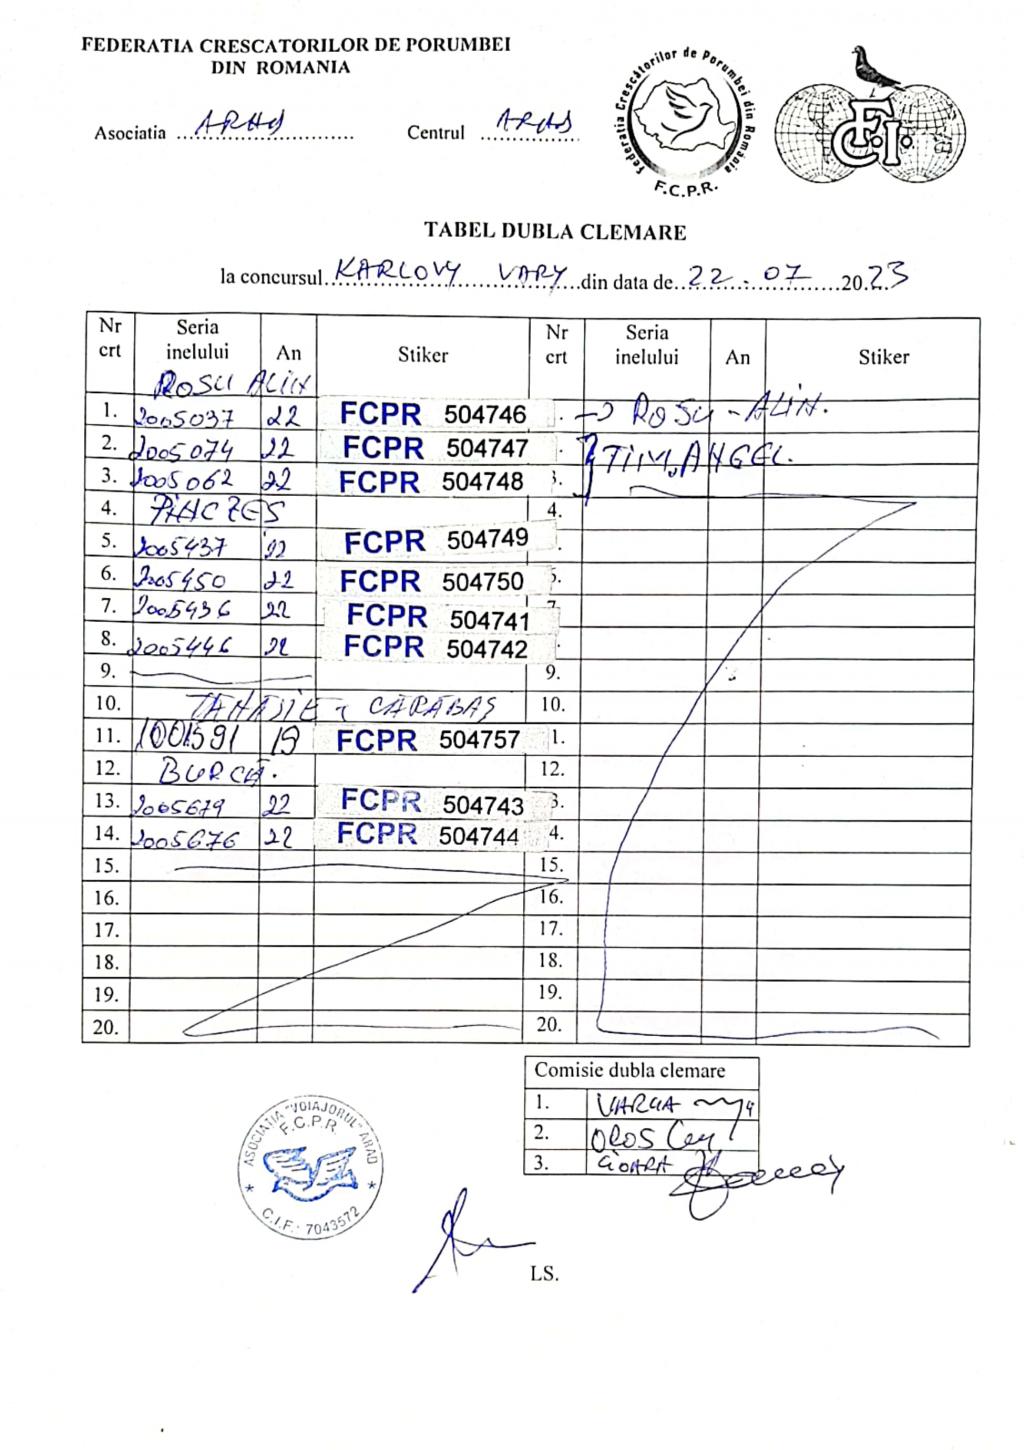 FEDERATIA CRESCATORILOR DE PORUMBEI
DIN ROMANIA
Asociatia ARAD Centrul ARAD
Federatia Crescătorilor de Porumbei din România
F.C.P.R.
F.C.I.
TABEL DUBLA CLEMARE
la concursul KARLOVY VARY din data de 22.07 2023
Nr crt Seria inelului An Stiker Nr crt Seria inelului An Stiker
ROSU ALIN
1. 2005037 22 FCPR 504746 . -> ROSU - ALIN.
2. 2005074 22 FCPR 504747 . TIM, ANGEL.
3. 2005062 22 FCPR 504748 3.
4. PINCZES 4.
5. 2005437 22 FCPR 504749 .
6. 2005450 22 FCPR 504750 5.
7. 2005436 22 FCPR 504741 7.
8. 2005446 22 FCPR 504742 .
9. 9.
10. TANASIE - CARABAȘ 10.
11. 1001591 19 FCPR 504757 1.
12. BURCĂ. 12.
13. 2005679 22 FCPR 504743 3.
14. 2005676 22 FCPR 504744 4.
15. 15.
16. 16.
17. 17.
18. 18.
19. 19.
20. 20.
Comisie dubla clemare
1. VARGA
2. OROS
3. CIOARA
ASOCIATIA "VOIAJORUL" ARAD
F.C.P.R.
C.I.F.: 7043572
LS.